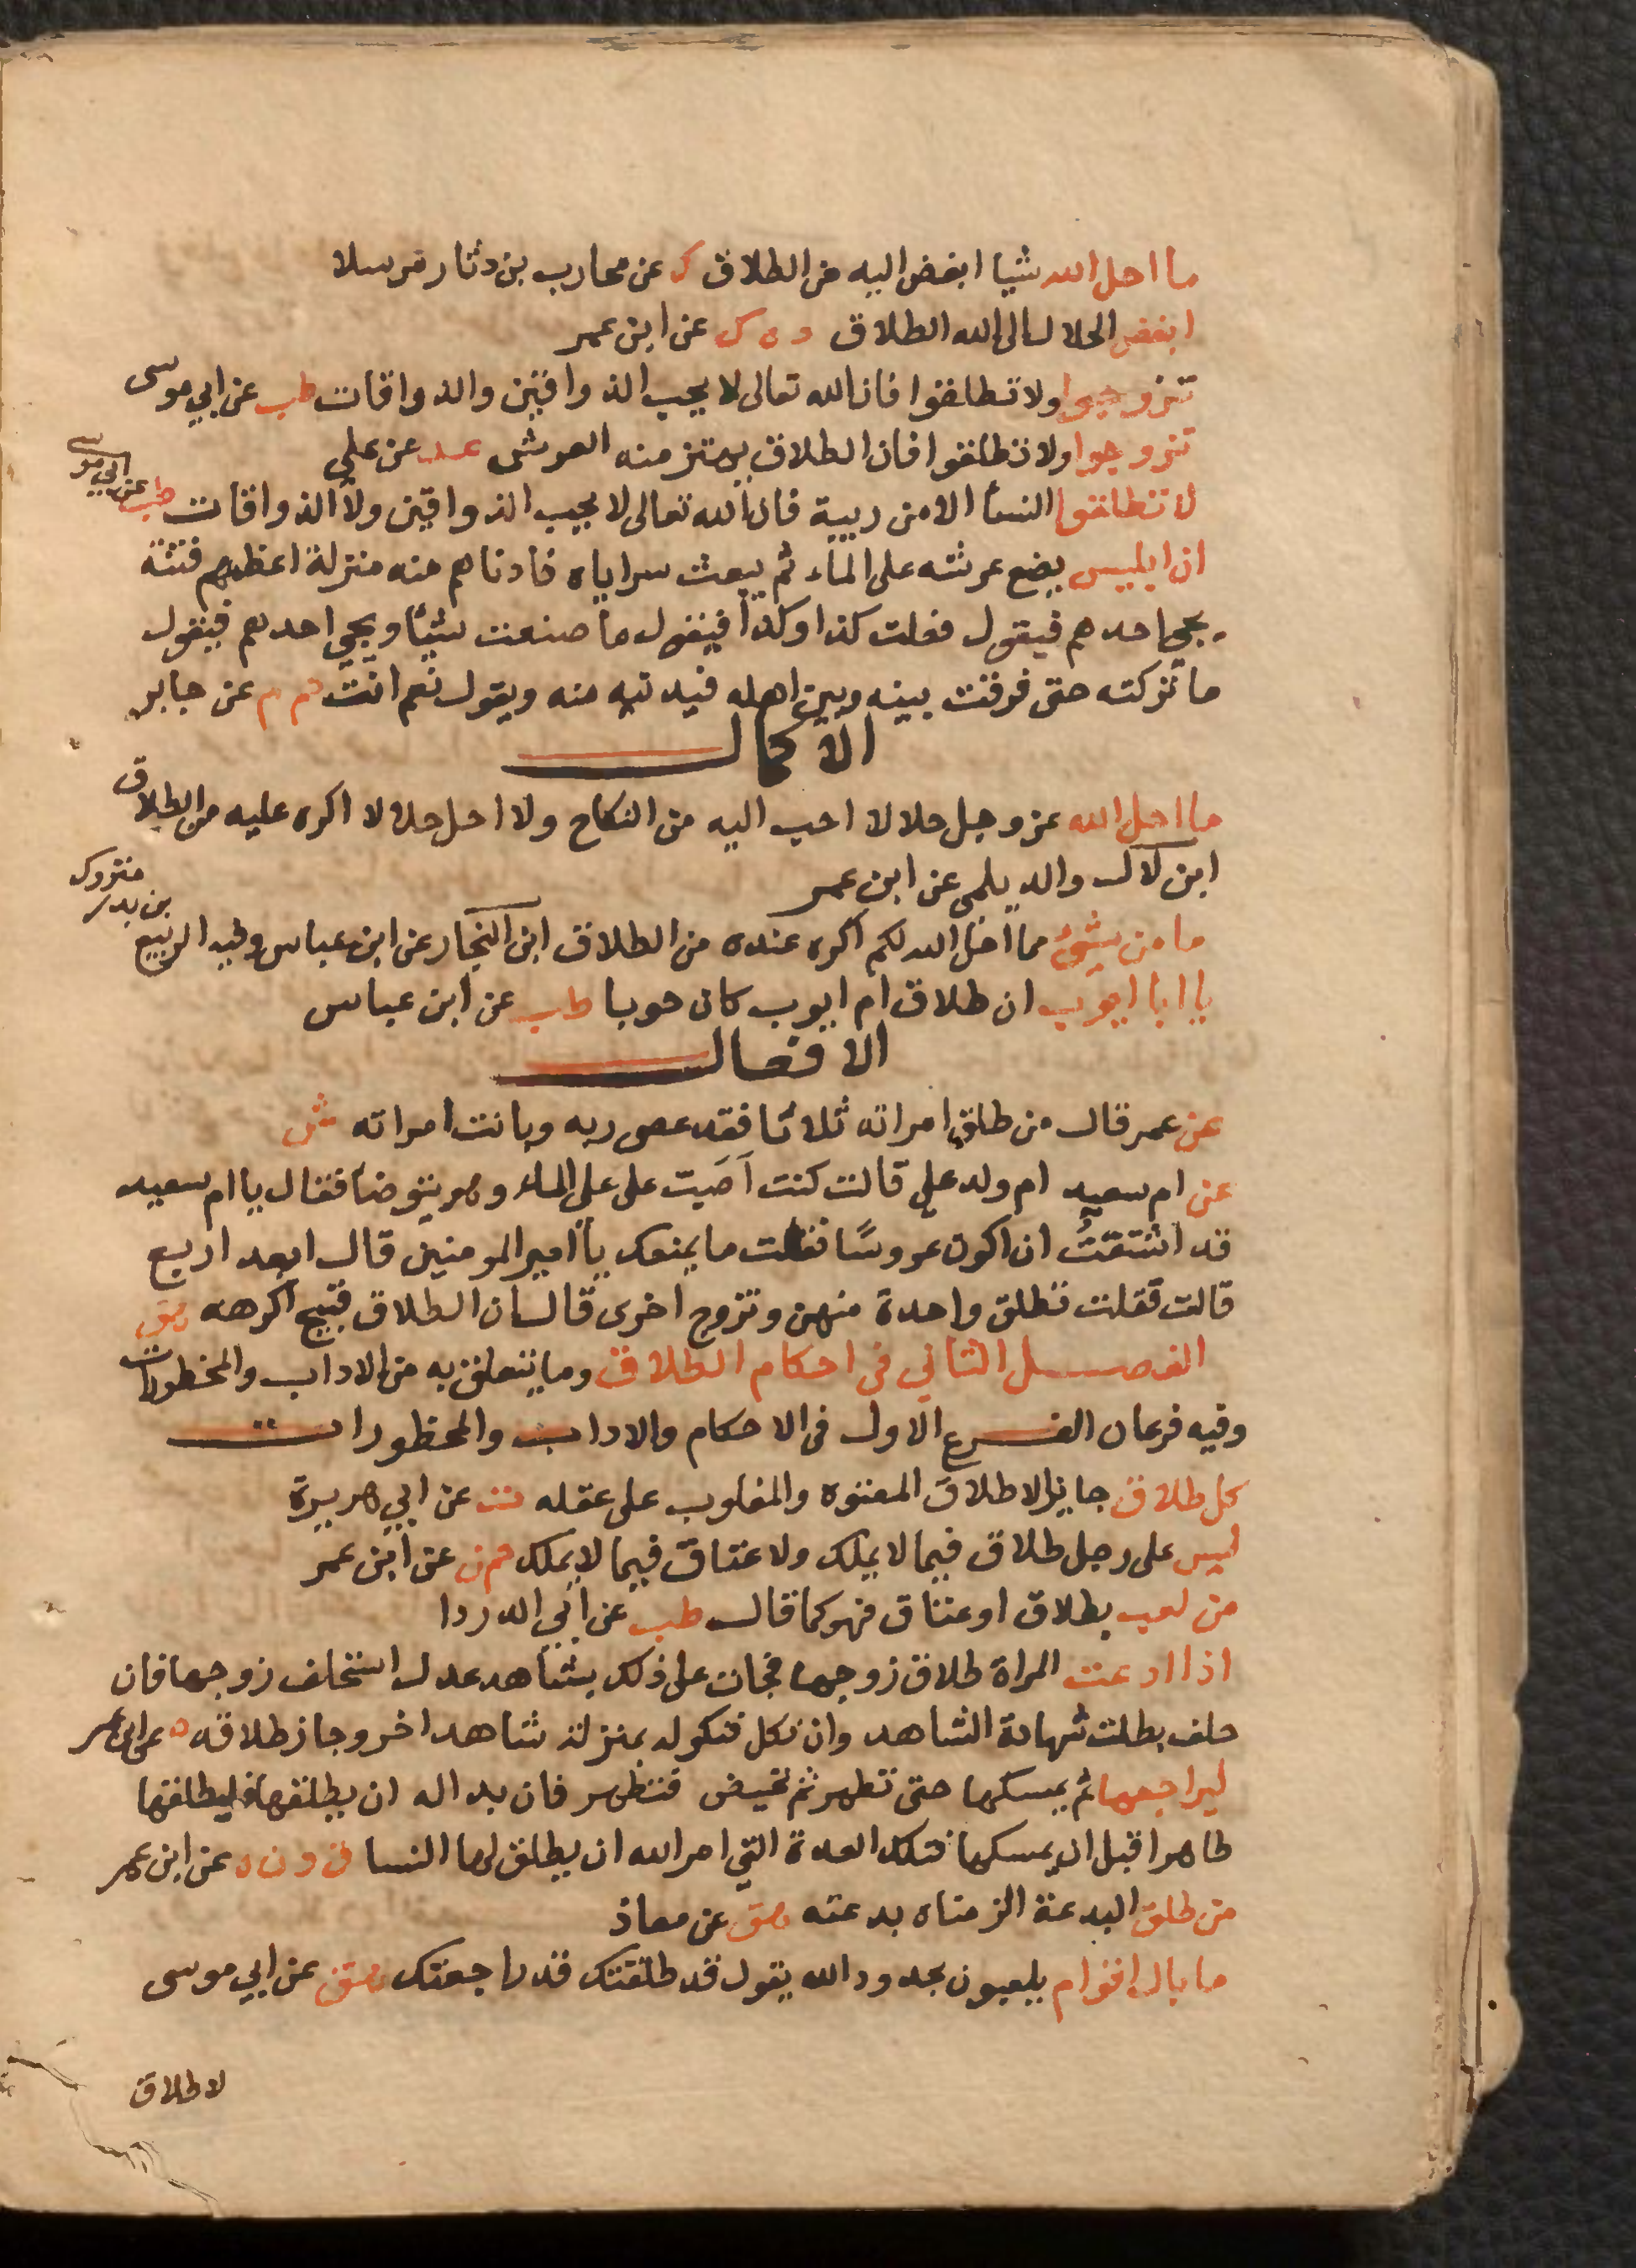 ما احل الله شيا ابغض اليه من الطلاق ك عن محارب بن دثار مرسلا
ابغض الحلال الى الله الطلاق د ه ك عن ابن عمر
تزوجوا ولا تطلقوا فان الله تعالى لا يحب الذواقين والذواقات طب عن ابي موسى
تزوجوا ولا تطلقوا فان الطلاق يهتز منه العرش عد عن علي
لا تطلقوا النسا الا من ريبة فان الله تعالى لا يحب الذواقين ولا الذواقات طب عن ابي موسى
ان ابليس يضع عرشه على الماء ثم يبعث سراياه فادناهم منه منزلة اعظمهم فتنة
يجي احدهم فيقول فعلت كذا وكذا فيقول ما صنعت شيئا ويجي احدهم فيقول
ما تركته حتى فرقت بينه وبين اهله فيدنيه منه ويقول نعم انت حم م عن جابر
الاكمال
ما احل الله عز وجل حلالا احب اليه من النكاح ولا احل حلالا اكره عليه من الطلاق
ابن لال والديلمي عن ابن عمر
ما من شيئ مما احل الله لكم اكره عنده من الطلاق ابن النجار عن ابن عباس وفيه الربيع بن بدر متروك
يا ابا ايوب ان طلاق ام ايوب كان حوبا طب عن ابن عباس
الافعال
عن عمر قال من طلق امراته ثلاثا فقد عصى ربه وبانت امراته ش
عن ام سعيد ام ولد علي قالت كنت اصبت على علي الماء وهو يتوضا فقال يا ام سعيد
قد اشتقت ان اكون عروسا فقلت ما يمنعك يا امير المومنين قال ابعد اربع
قالت فقلت تطلق واحدة منهن وتزوج اخرى قال ان الطلاق قبيح اكرهه هق
الفصل الثاني في احكام الطلاق وما يتعلق به من الاداب والمحظورات
وفيه فرعان الفرع الاول في الاحكام والاداب والمحظورات
كل طلاق جايز الا طلاق المعتوه والمغلوب على عقله ت عن ابي هريرة
ليس على رجل طلاق فيما لا يملك ولا عتاق فيما لا يملك حم ن عن ابن عمر
من لعب بطلاق او عتاق فهو كما قال طب عن ابي الدردا
اذا ادعت المراة طلاق زوجها فجات على ذلك بشاهد عدل استحلف زوجها فان
حلف بطلت شهادة الشاهد وان نكل فنكوله بمنزلة شاهد اخر وجاز طلاقه ه عن ابن عمر
ليراجعها ثم يمسكها حتى تطهر ثم تحيض فتطهر فان بدا له ان يطلقها فليطلقها
طاهرا قبل ان يمسكها فتلك العدة التي امر الله ان يطلق لها النسا ق د ن ه عن ابن عمر
من طلق البدعة الزمناه بدعته هق عن معاذ
ما بال اقوام يلعبون بحدود الله يقول قد طلقتك قد راجعتك هق عن ابي موسى
لا طلاق